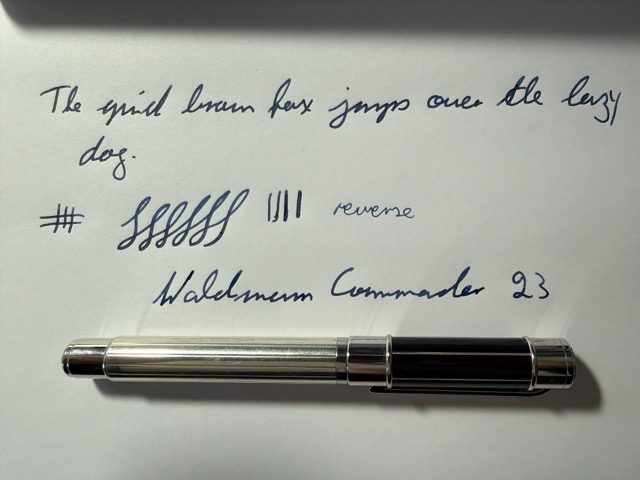 The quick brown fox jumps over the lazy
dog.
reverse
Waldmann Commander 23